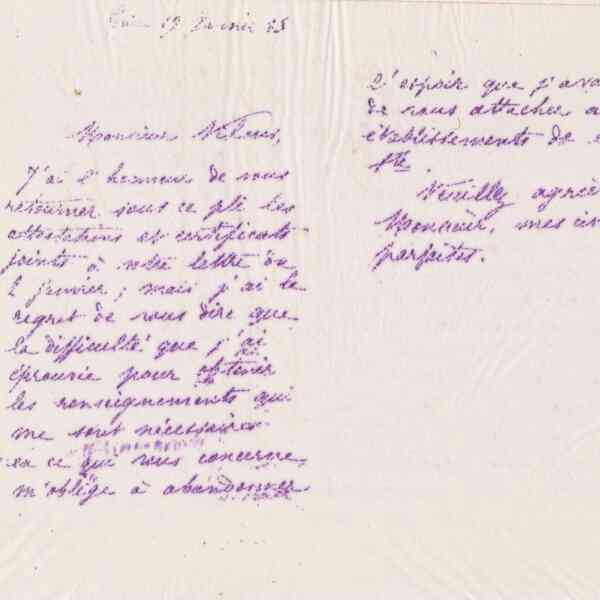 19 Janvier 85
Monsieur
J'ai l'honneur de vous
retourner sous ce pli les
attestations et certificats
joints à votre lettre du
2 janvier ; mais j'ai le
regret de vous dire que
la difficulté que j'ai
éprouvée pour obtenir
les renseignements qui
me sont nécessaires
en ce qui vous concerne,
m'oblige à abandonner
l'espoir que j'ava
de vous attacher a
établissements de
Sté.
Veuillez agrée
Monsieur, mes civ
parfaites.